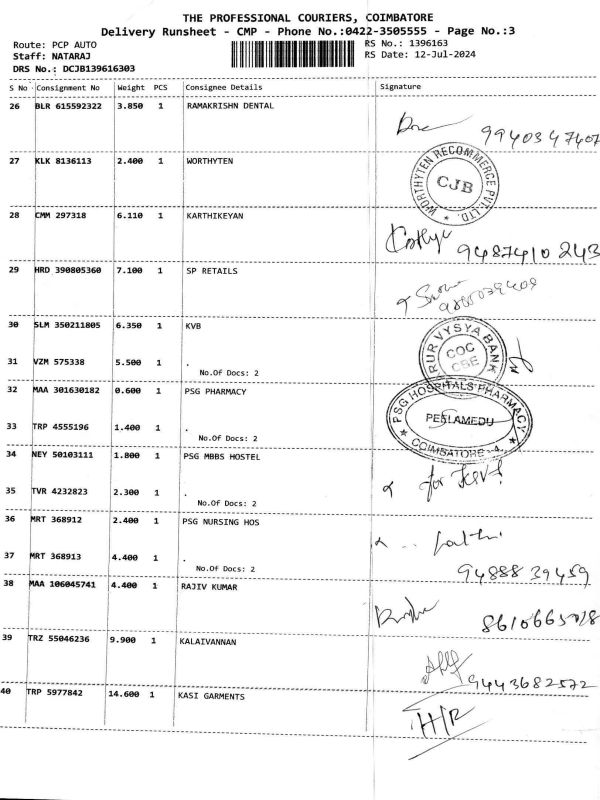 THE PROFESSIONAL COURIERS, COIMBATORE
Delivery Runsheet - CMP - Phone No.:0422-3505555 - Page No.:3
Route: PCP AUTO RS No.: 1396163
Staff: NATARAJ RS Date: 12-Jul-2024
DRS No.: DCJB139616303
S No Consignment No Weight PCS Consignee Details Signature
26 BLR 615592322 3.850 1 RAMAKRISHN DENTAL
9940347407
27 KLK 8136113 2.400 1 WORTHYTEN
WORTHYTEN RECOMMERCE PVT. LTD. * CJB *
28 CMM 297318 6.110 1 KARTHIKEYAN
9487410243
29 HRD 390805360 7.100 1 SP RETAILS
30 SLM 350211805 6.350 1 KVB
KARUR VYSYA BANK
COC
CSE
31 VZM 575338 5.500 1 .
No.Of Docs: 2
32 MAA 301630182 0.600 1 PSG PHARMACY
PSG HOSPITALS PHARMACY
PEELAMEDU
* COIMBATORE - 4. *
33 TRP 4555196 1.400 1 .
No.Of Docs: 2
34 NEY 50103111 1.800 1 PSG MBBS HOSTEL
35 TVR 4232823 2.300 1 .
No.Of Docs: 2
36 MRT 368912 2.400 1 PSG NURSING HOS
37 MRT 368913 4.400 1 .
No.Of Docs: 2
94888 39459
38 MAA 106045741 4.400 1 RAJIV KUMAR
39 TRZ 55046236 9.900 1 KALAIVANNAN
9443682572
40 TRP 5977842 14.600 1 KASI GARMENTS
H/R